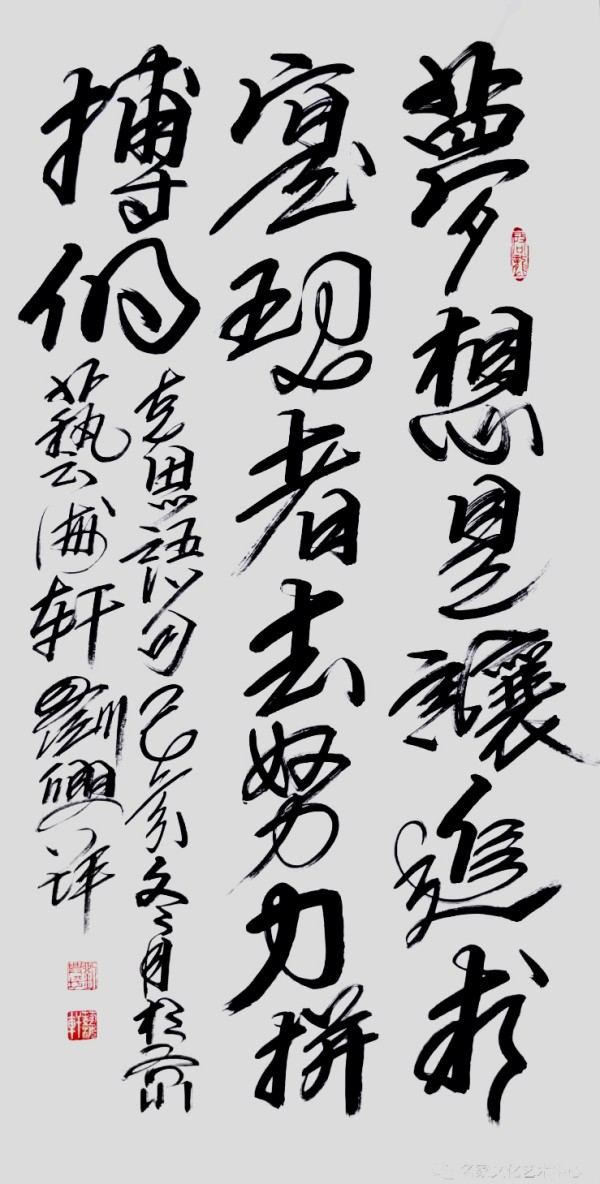 夢想是讓追求
實現者去努力拼
搏的
克思語句己亥冬月於
藝海轩劉興祥
名家文化艺术中心